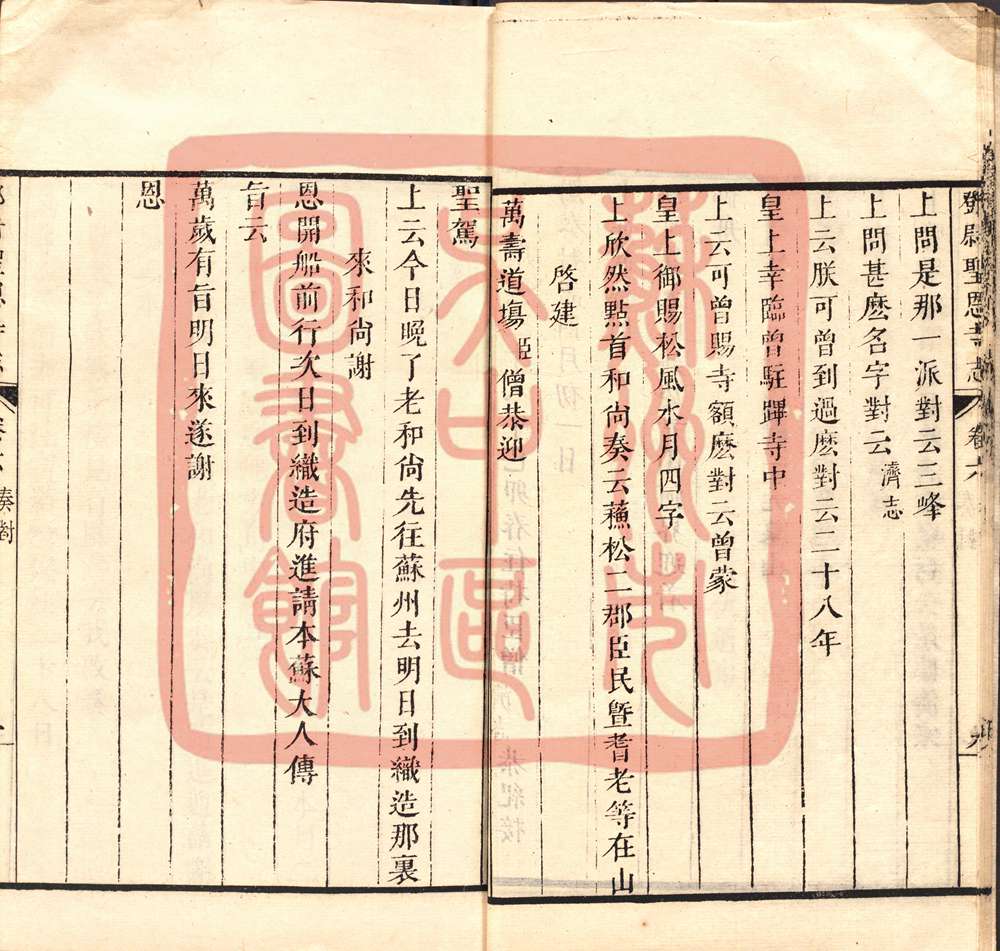 鄧尉聖恩寺志 卷六
上問是那一派對云三峰
上問甚麽名字對云濟志
上云朕可曾到過麽對云二十八年
皇上幸臨曾駐蹕寺中
上云可曾賜寺額麽對云曾蒙
皇上御賜松風水月四字
上欣然點首和尚奏云蘇松二郡臣民曁耆老等在山
啓建
萬壽道塲臣僧恭迎
聖駕
上云今日晚了老和尚先往蘇州去明日到織造那裏
來和尚謝
恩開船前行次日到織造府進請本蘇大人傳
旨云
萬歲有旨明日來遂謝
恩
奏對
蘇州市
天出圖
圖書館